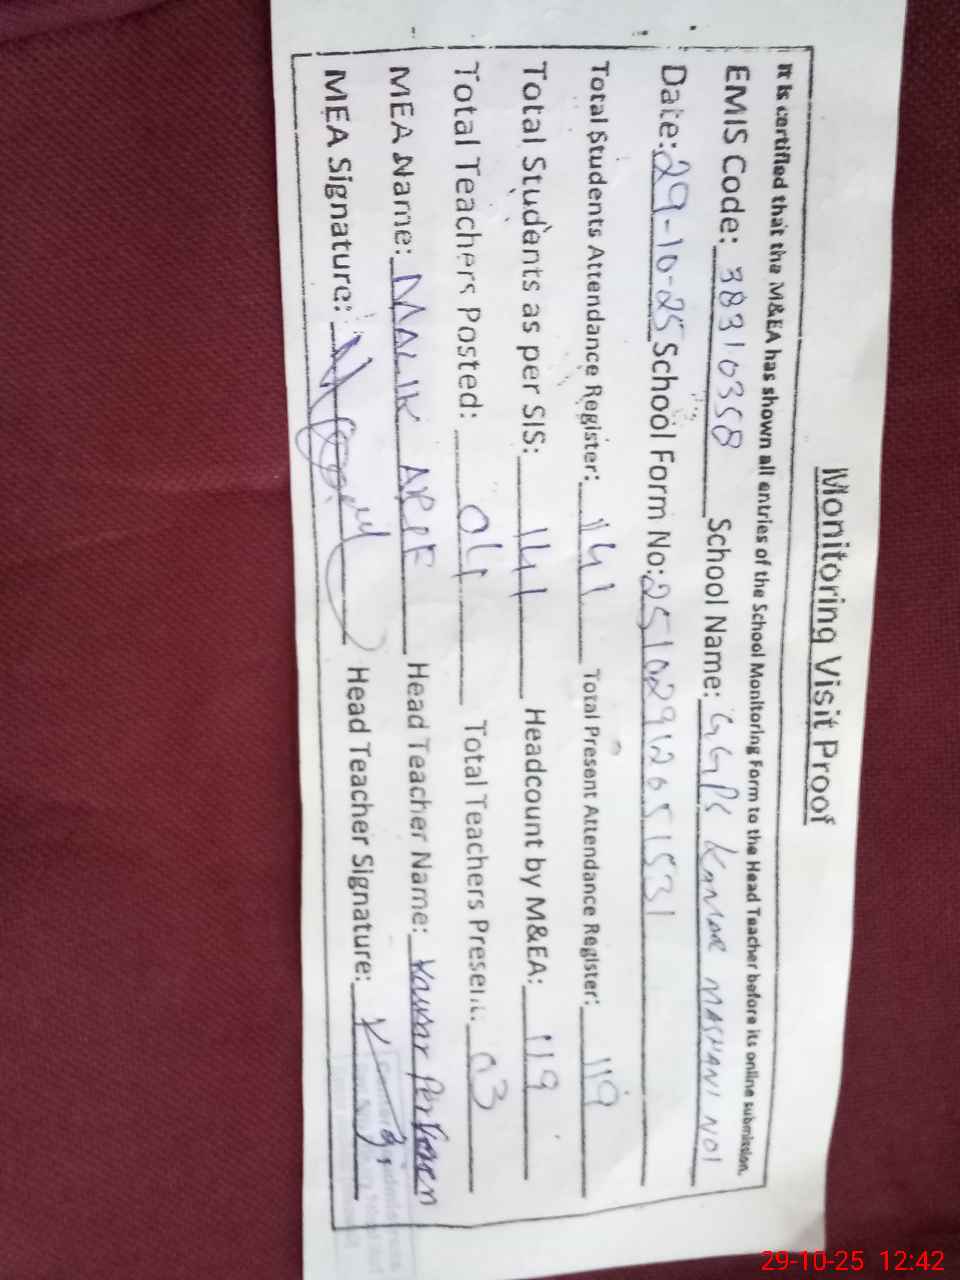 Monitoring Visit Proof
It is certified that the M&EA has shown all entries of the School Monitoring Form to the Head Teacher before its online submission.
EMIS Code: 38310358 School Name: GGPS KAMAR MASHANI NO1
Date: 29-10-25 School Form No: 25102912651531
Total Students Attendance Register: 141 Total Present Attendance Register: 119
Total Students as per SIS: 141 Headcount by M&EA: 119
Total Teachers Posted: 04 Total Teachers Present: 03
MEA Name: MALIK ARIF Head Teacher Name: Kausar Perveen
MEA Signature: Head Teacher Signature:
29-10-25 12:42